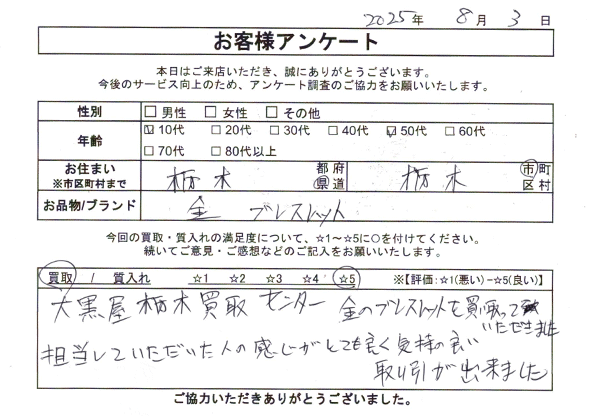 2025年 8月 3日
お客様アンケート
本日はご来店いただき、誠にありがとうございます。
今後のサービス向上のため、アンケート調査のご協力をお願いいたします。
性別 □ 男性 □ 女性 □ その他
年齢 ☑ 10代 □ 20代 □ 30代 □ 40代 ☑ 50代 □ 60代
□ 70代 □ 80代以上
お住まい ※市区町村まで 栃木 都府県道 栃木 市町区村
お品物/ブランド 金 ブレスレット
今回の買取・質入れの満足度について、☆1～☆5に○を付けてください。
続いてご意見・ご感想などのご記入をお願いします。
買取 / 質入れ ☆1 ☆2 ☆3 ☆4 ☆5 ※【評価:☆1(悪い)－☆5(良い)】
大黒屋 栃木買取センター 金のブレスレットを買取って
いただきました
担当していただいた人の感じがとても良く気持の良い
取り引が出来ました
ご協力いただきありがとうございました。